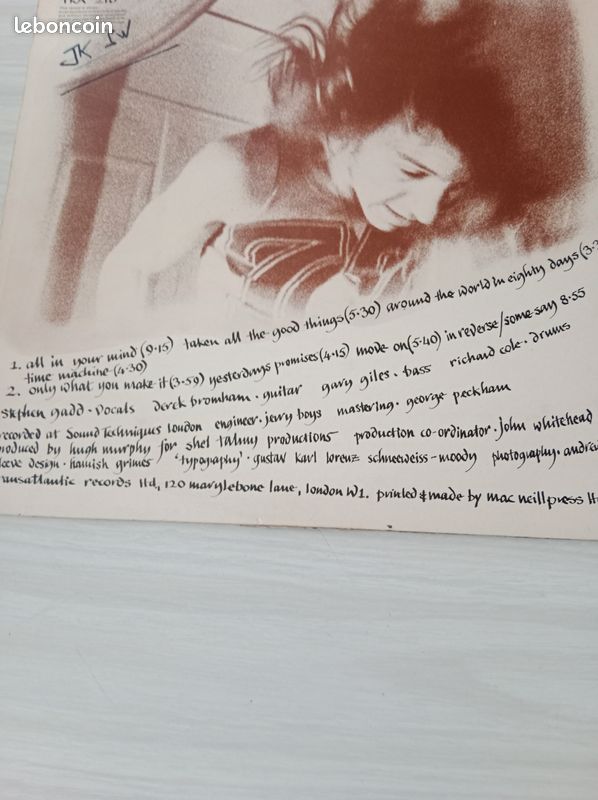 leboncoin
TRA 210
JK JW
1. all in your mind (9·15) taken all the good things (5·30) around the world in eighty days (3·3
time machine (4·30)
2. only what you make it (3·59) yesterdays promises (4·15) move on (5·40) in reverse/some say 8·55
stephen gadd · vocals derek bromham · guitar gary giles · bass richard cole · drums
recorded at Sound Techniques London engineer · jerry boys mastering · george peckham
roduced by hugh murphy for shel talmy productions production co-ordinator · john whitehead
leeve design · hamish grimes 'typography' · gustav karl lorenz schneeweiss-moody photography · andrea
ransatlantic records ltd, 120 marylebone lane, london W1. printed & made by mac neill press lt